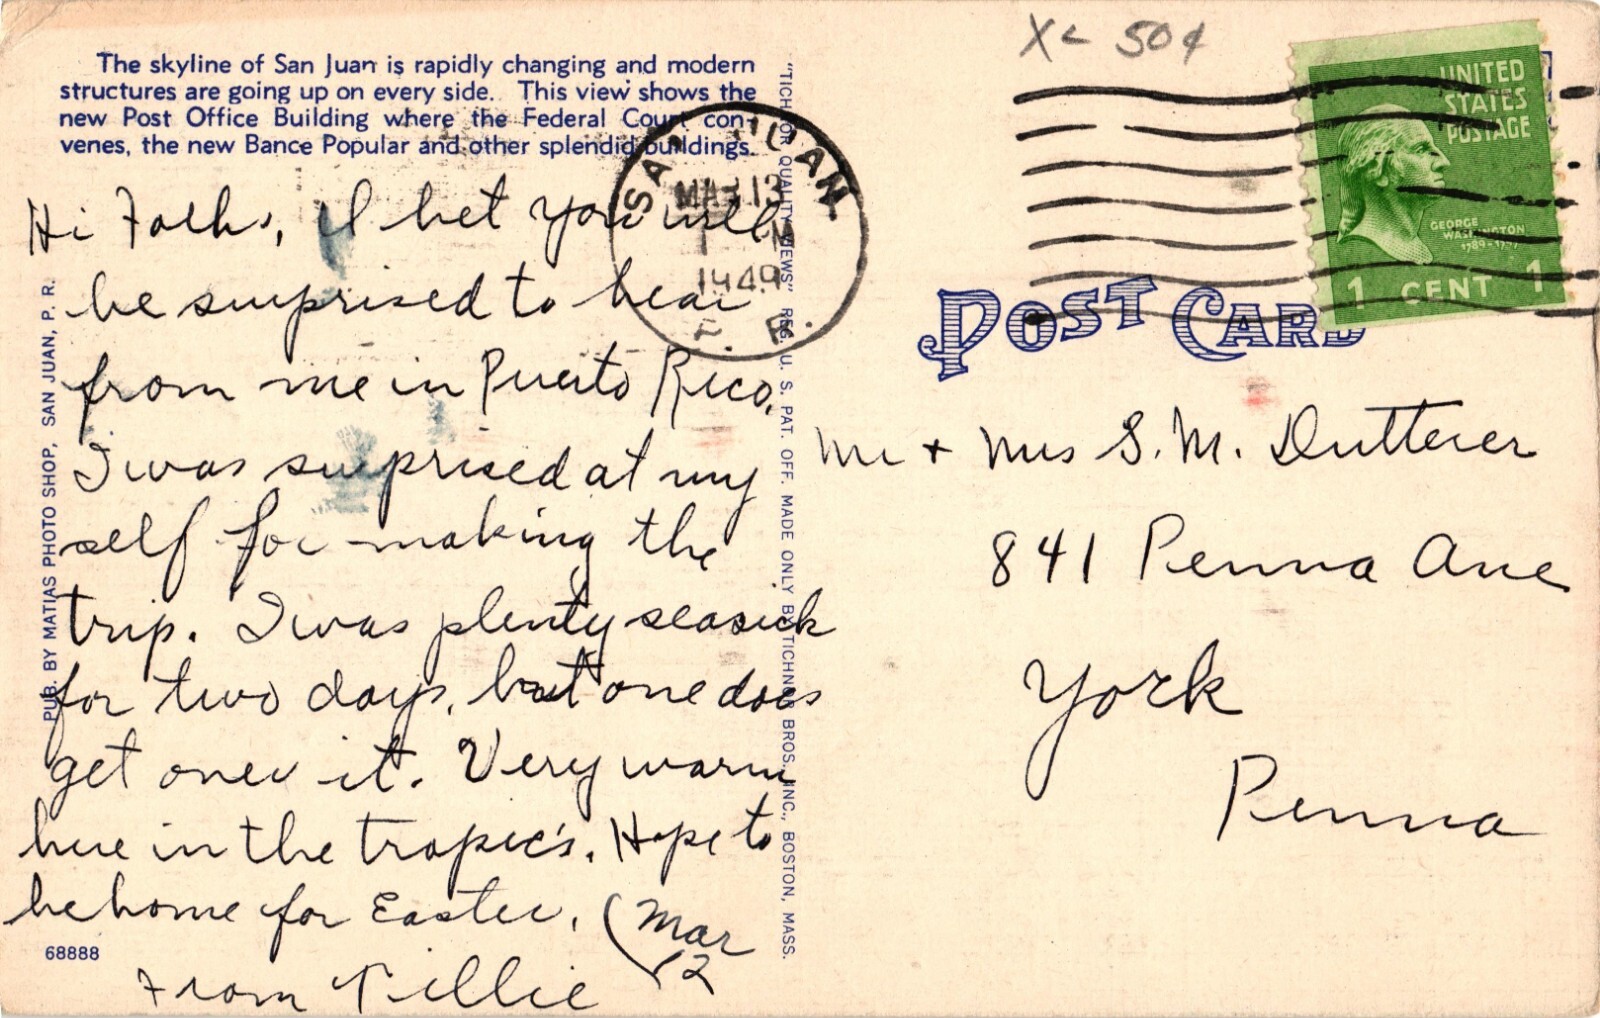 The skyline of San Juan is rapidly changing and modern
structures are going up on every side. This view shows the
new Post Office Building where the Federal Court con-
venes, the new Bance Popular and other splendid buildings.
Hi Folks, I bet you will
be surprised to hear
from me in Puerto Rico.
I was surprised at my
self for making the
trip. I was plenty seasick
for two days, but one does
get over it. Very warm
here in the tropic's. Hope to
be home for Easter. (Mar
12
From Tillie
68888
PUB. BY MATIAS PHOTO SHOP, SAN JUAN, P. R.
"TICHNOR QUALITY VIEWS" REG. U. S. PAT. OFF. MADE ONLY BY TICHNOR BROS., INC., BOSTON, MASS.
SAN JUAN
MAR 13
1949
P. R.
X< 50¢
UNITED
STATES
POSTAGE
GEORGE
WASHINGTON
1789-1797
1 CENT 1
POST CARD
Mr + Mrs S. M. Dutterer
841 Penna Ave
York
Penna